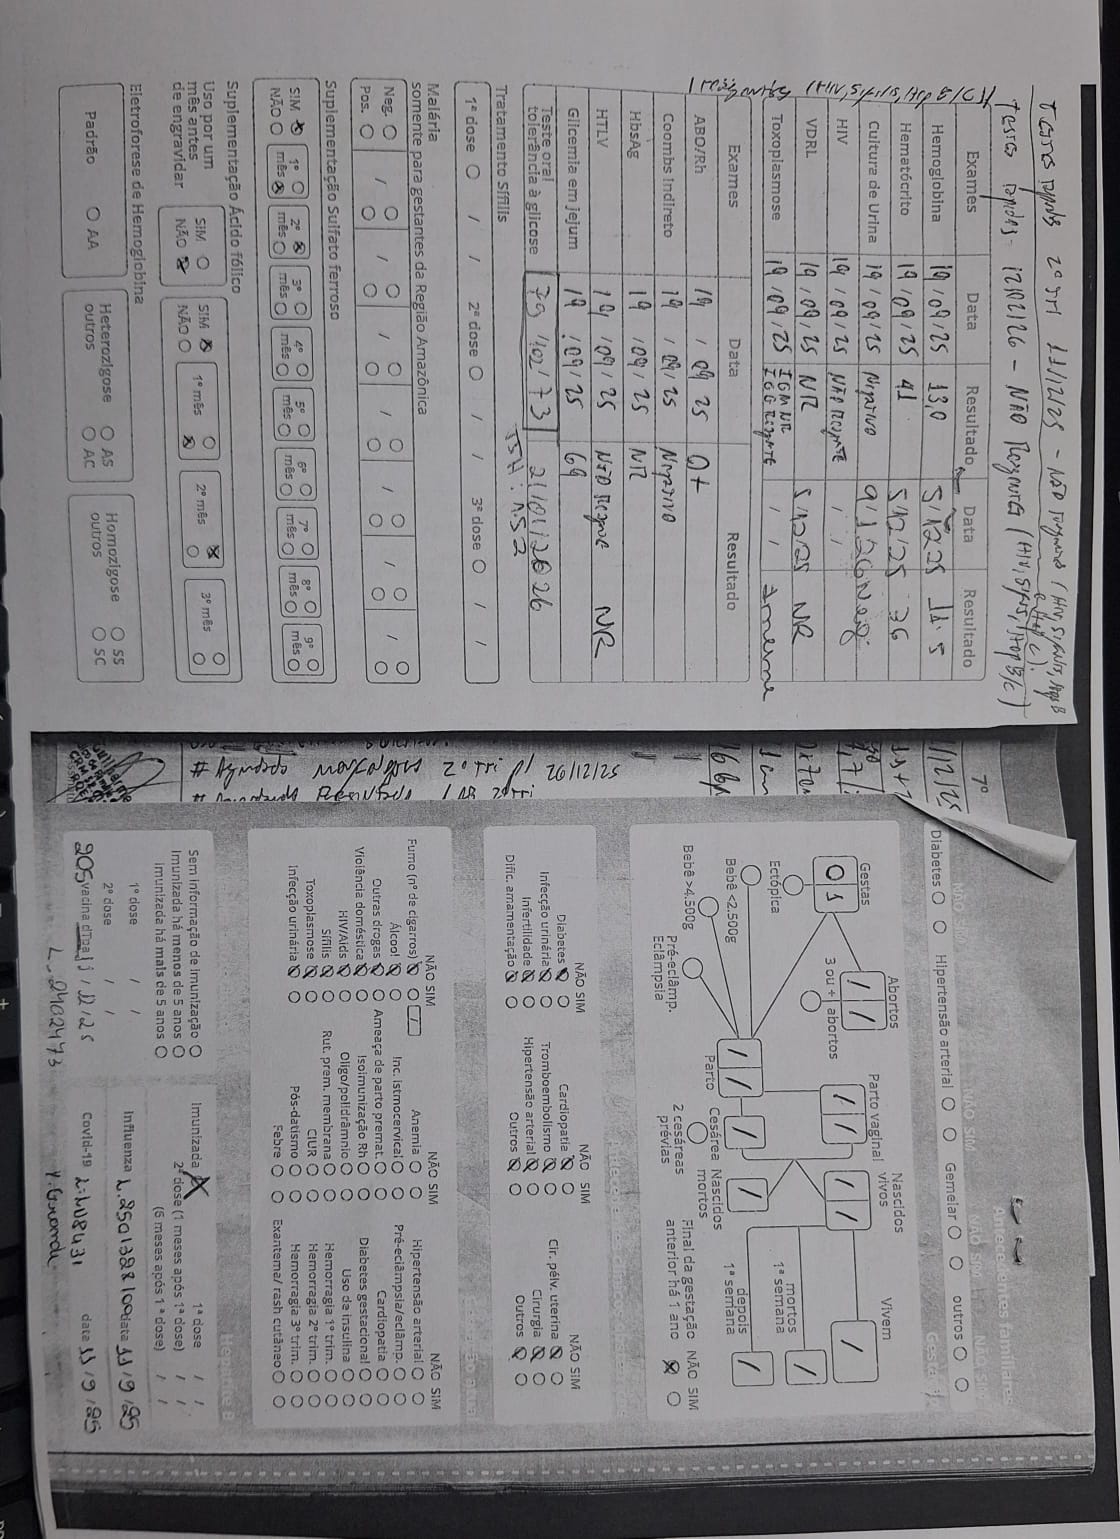 Testes rápidos 2º TRI 11/12/25 - NÃO reagente (HIV, Sífilis, Hep B e Hep C).
Testes rápidos - 12/02/26 - NÃO Reagentes (HIV, Sífilis, Hep B/C)
Exames Data Resultado Data Resultado
Hemoglobina 19/09/25 13,0 5/12/25 11.5
Hematócrito 19/09/25 41 5/12/25 36
Cultura de Urina 19/09/25 Negativo 9/1/26 Neg
HIV 19/09/25 NÃO Reagente / /
VDRL 19/09/25 NR 5/12/25 NR
Toxoplasmose 19/09/25 IGM NR IGG Reagente / / Imune
Exames Data Resultado
ABO/Rh 19/09/25 O+
Coombs Indireto 19/09/25 Negativo
HbsAg 19/09/25 NR
HTLV 19/09/25 NÃO Reagente NR
Glicemia em jejum 19/09/25 69
Teste oral
tolerância à glicose 79/102/73 21/01/2026
TSH: 1.52
Tratamento Sífilis
1ª dose / / 2ª dose / / 3ª dose / /
Malária
somente para gestantes da Região Amazônica
Neg.
Pos.
Suplementação Sulfato ferroso
SIM 1º 2º 3º 4º 5º 6º 7º 8º 9º
NÃO mês mês mês mês mês mês mês mês mês
Suplementação Ácido fólico
Uso por um
mês antes
de engravidar
SIM
NÃO
SIM
NÃO
1º mês 2º mês 3º mês
Eletroforese de Hemoglobina
Padrão AA
Heterozigose AS
outros AC
Homozigose SS
outros SC
7º
1/12/25
# Agendado morfológico 2º tri p/ 26/12/25
Diabetes Hipertensão arterial Gemelar outros
Gestas
Abortos
Parto vaginal
Nascidos
vivos
Vivem
3 ou + abortos
Ectópica
mortos
1ª semana
Bebê <2.500g
Parto
Cesárea
Nascidos
mortos
depois
1ª semana
Bebê >4.500g
Pré-eclâmp.
Eclâmpsia
2 cesáreas
prévias
Final da gestação
anterior há 1 ano
NÃO SIM
NÃO SIM NÃO SIM NÃO SIM
Diabetes Cardiopatia Cir. pélv. uterina
Infecção urinária Tromboembolismo Cirurgia
Infertilidade Hipertensão arterial Outros
Dific. amamentação Outros
NÃO SIM NÃO SIM NÃO SIM
Fumo (nº de cigarros) Anemia Hipertensão arterial
Álcool Inc. istmocervical Pré-eclâmpsia/eclâmp.
Outras drogas Ameaça de parto premat. Cardiopatia
Violência doméstica Isoimunização Rh Diabetes gestacional
HIV/Aids Oligo/polidrâmnio Uso de insulina
Sífilis Rut. prem. membrana Hemorragia 1º trim.
Toxoplasmose CIUR Hemorragia 2º trim.
Infecção urinária Pós-datismo Hemorragia 3º trim.
Febre Exantema/ rash cutâneo
Sem informação de imunização
Imunizada há menos de 5 anos
Imunizada há mais de 5 anos
1º dose / /
2º dose / /
vacina dTpa 11/12/25
Imunizada 1ª dose / /
2ª dose (1 meses após 1ª dose) / /
(6 meses após 1ª dose) / /
Influenza data 11/9/25
Covid-19 data 11/9/25